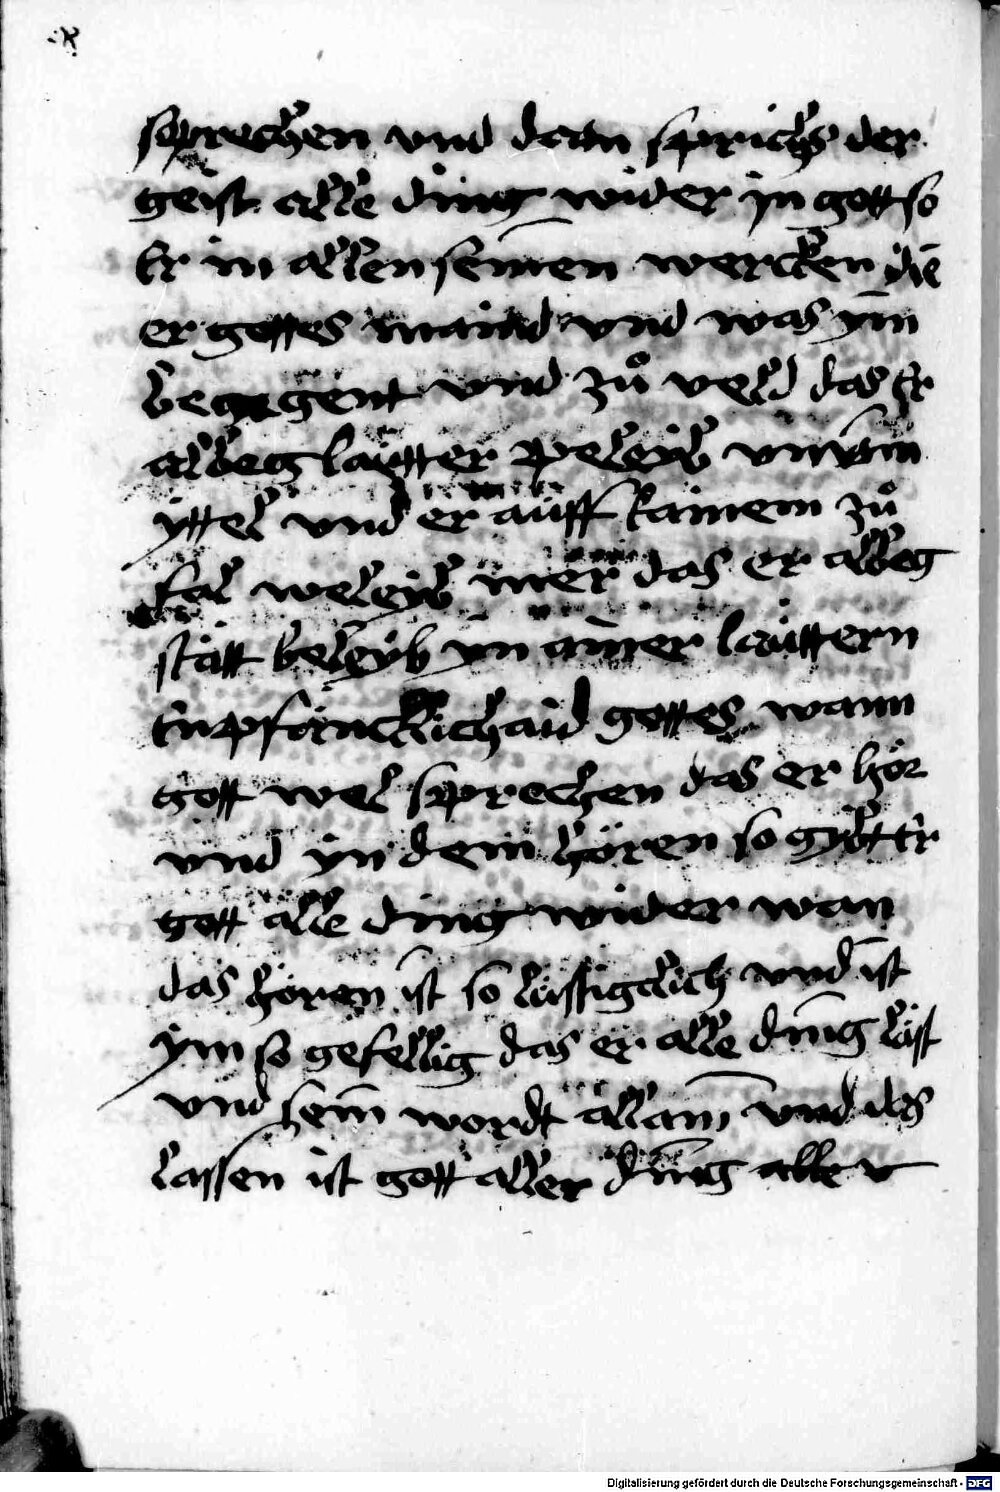 sprechen vnd dean sprichs der
geist alle ding wider in gott so
Er in allen seinen wercken die
er gottes maind vnd was ym
begegent vnd zů veld das Er
albeg lautter peleib vnd
yttel vnd er auff kainem zů
fal peleyb mer das er albeg
stätt beleyb yn ainer lauttern
Enpfäncklichaid gottes wann
gott wel sprechen das er hör
vnd yn dem hören so gybt Er
gott alle ding wider wan
das hören ist so lustigclich vnd ist
ym so gefellig das er alle ding läst
vnd sein wordt allain vnd das
lassen ist gott aller ding aller
Digitalisierung gefördert durch die Deutsche Forschungsgemeinschaft - DFG